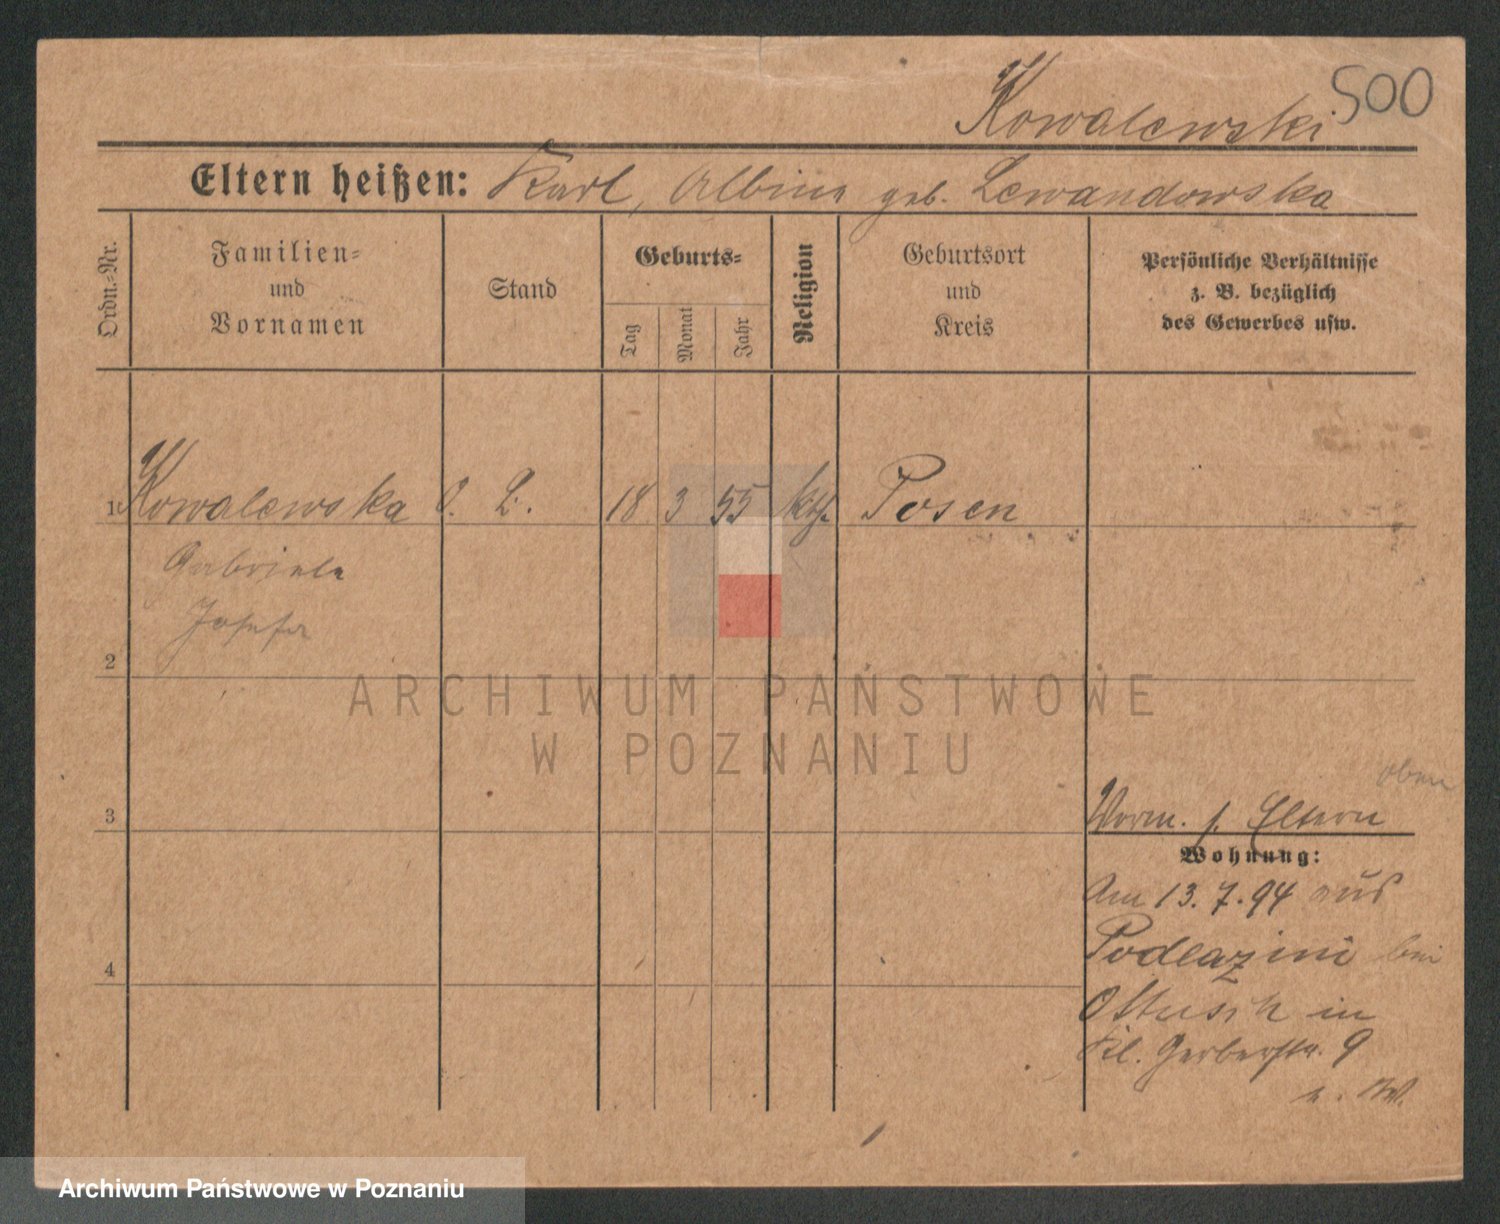 500
Kowalewski
Eltern heißen: Karl, Albine geb. Lewandowska
Ordn.-Nr.
Familien-
und
Vornamen
Stand
Geburts-
Tag
Monat
Jahr
Religion
Geburtsort
und
Kreis
Persönliche Verhältnisse
z. B. bezüglich
des Gewerbes usw.
1 Kowalewska O. L. 18 3 55 kth. Posen
Gabriele
Josefa
2
ARCHIWUM PAŃSTWOWE
W POZNANIU
3
oben
Vorm. s. Eltern
Wohnung:
Am 13.7.94 aus
4
Podlazini bei
Ottusch in
Kl. Gerberstr. 9
Archiwum Państwowe w Poznaniu